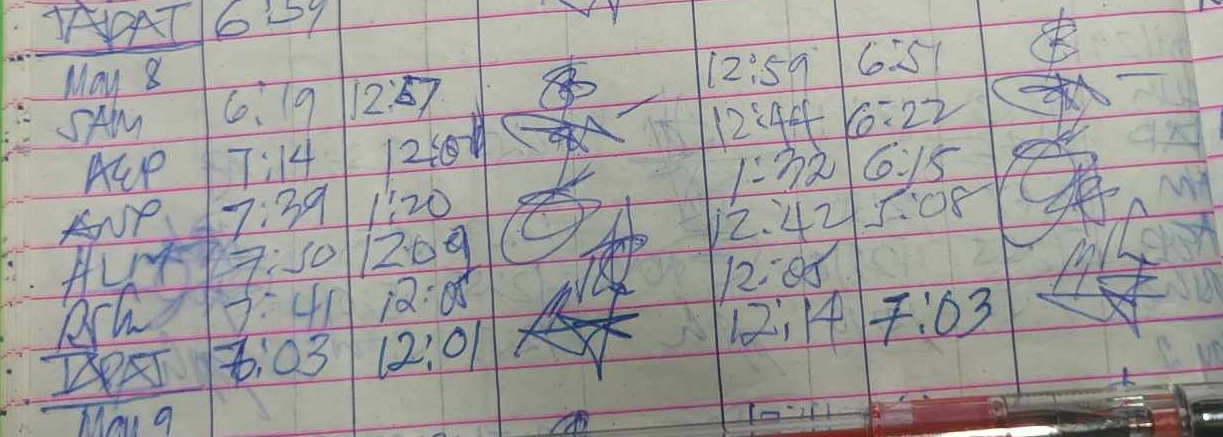 TAPAT 6:59
May 8
SAM 6:19 12:57 12:59 6:51
AEP 7:14 12:01 12:44 6:22
ANP 7:39 1:20 1:32 6:15
ALM 7:50 12:09 12:42 5:08
7:41 12:05 12:05
TAPAT 7:03 12:01 12:14 7:03
May 9